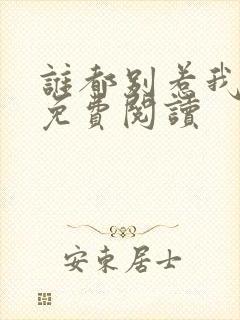 誰都別惹我
免費閱讀
安東居士